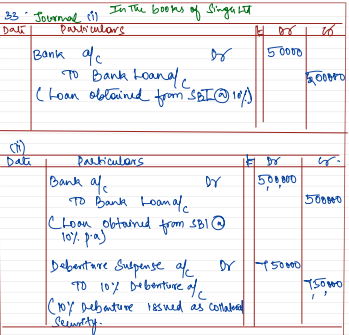 33. Journal (i) In the books of Singh Ltd
Date Particulars Dr Cr
Bank a/c Dr 50000
To Bank Loan a/c 500000
(Loan obtained from SBI @ 10%)
(ii)
Date Particulars Dr Cr
Bank a/c Dr 500000
To Bank Loan a/c 500000
(Loan obtained from SBI @
10% p.a)
Debenture Suspense a/c Dr 750000
To 10% Debenture a/c 750000
(10% Debenture issued as collateral
Security.